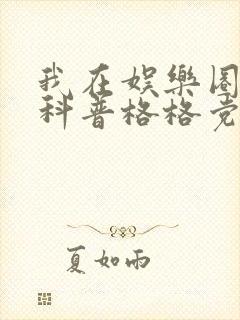 我在娱樂圈
科普格格党
夏如雨